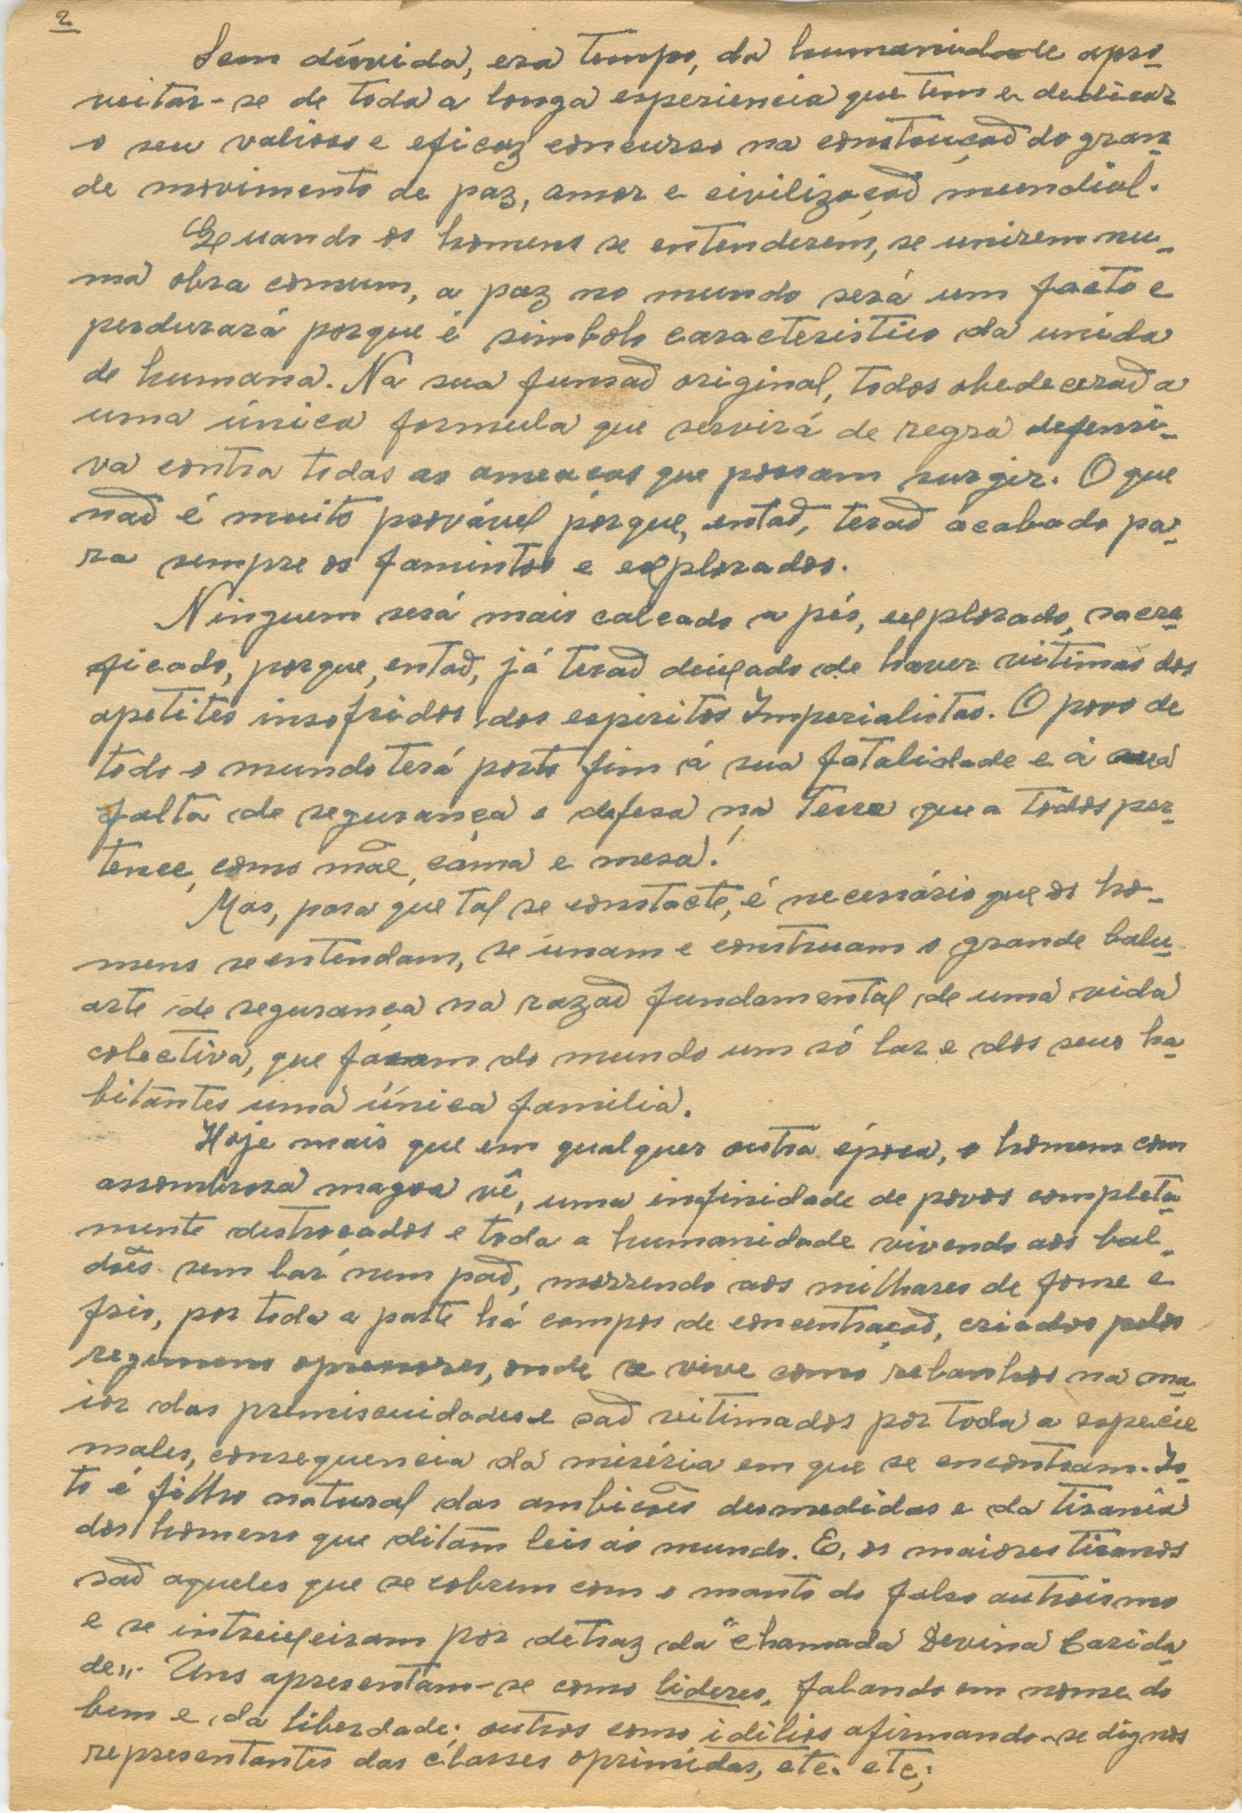 2
Sem dúvida, era tempo, da humanidade apro-
veitar-se de toda a longa experiencia que tem e dedicar
o seu valioso e eficaz concurso na construçaõ do gran-
de movimento de paz, amor e civilizaçaõ mundial.
Quando os homens se entenderem, se unirem nu-
ma obra comum, a paz no mundo será um facto e
perdurará porque é simbolo caracteristico da unida
de humana. Na sua funsaõ original, todos obedeceraõ a
uma única formula que servirá de regra defensi-
va contra todas as ameaças que possam surgir. O que
naõ é muito provável porque, entaõ, teraõ acabado pa-
ra sempre os famintos e explorados.
Ninguem será mais calcado a pés, explorado, sacre-
ficado, porque, entaõ, já teraõ deixado de haver vitimas dos
apetites insofridos, dos espiritos Imperialistas. O povo de
todo o mundo terá posto fim á sua fatalidade e á sua
falta de segurança e defesa na Terra que a todos per-
tence, como mãe, cama e mesa!
Mas, para que tal se constacte, é necessário que os ho-
mens se entendam, se unam e construam o grande balu-
arte de segurança na razaõ fundamental de uma vida
colectiva, que façam do mundo um só lar e dos seus ha-
bitantes uma única familia.
Hoje mais que em qualquer outra época, o homem com
assombrosa magoa vê, uma infinidade de povos completa-
mente destroçados e toda a humanidade vivendo aos bal-
dões sem lar nem paõ, morrendo aos milhares de fome e
frio, por toda a parte há campos de concentraçaõ, criados pelos
regimens opressores, onde se vive como rebanhos na ma-
ior das premiscuidades e saõ vitimados por toda a especie
males, consequencia da miséria em que se encontram. Is-
to é filho natural das ambições desmedidas e da tirania
dos homens que ditam leis ao mundo. E, os maiores tiranos
saõ aqueles que se cobrem com o manto do falso autroismo
e se intreixeiram por detraz da "chamada Devina Carida-
de". Uns apresentam-se como lideres, falando em nome do
bem e da liberdade; outros como idilios afirmando-se dignos
representantes das classes oprimidas, etc. etc;